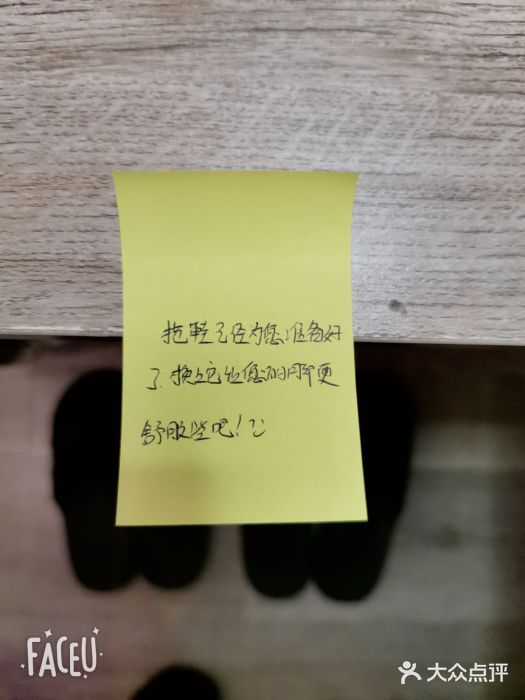 拖鞋已经为您准备好
了.换上它让您的脚更
舒服些吧!:)
FACEU
大众点评